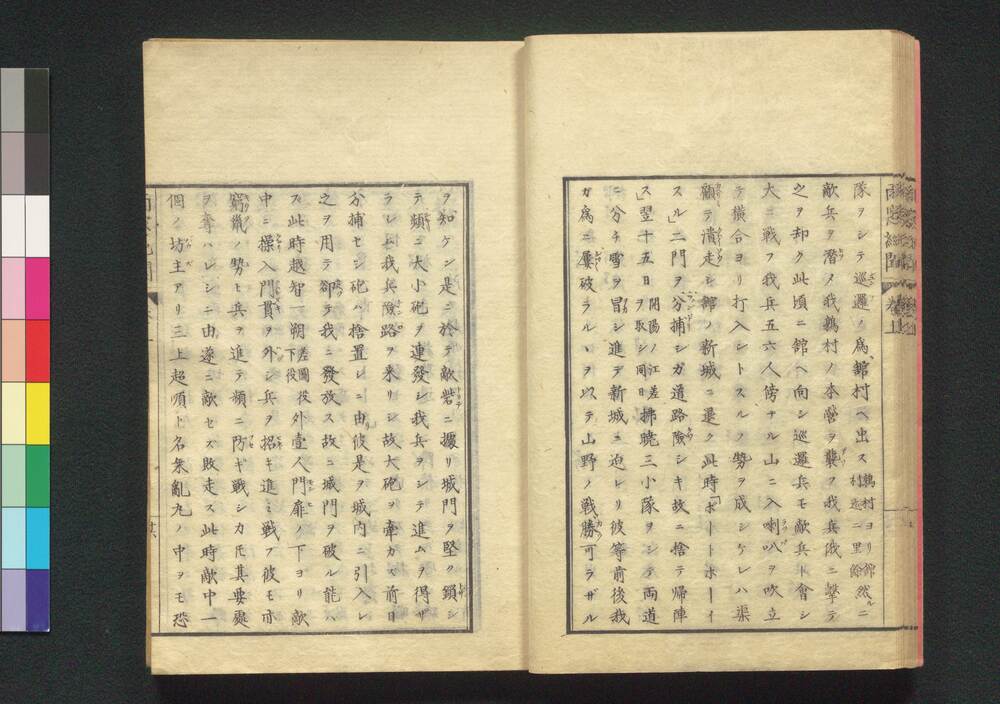 隊ヲシテ巡邏ノ爲、舘村ヘ出ス 鶉村ヨリ舘
村迄ニ里餘 然ルニ
敵兵ヲ潜メ我鶉村ノ本營ヲ襲フ我兵俄ニ撃テ
之ヲ却ク此頃ニ舘ヘ向シ巡邏兵モ敵兵ト會シ
大ニ戰フ我兵五六人傍ナル山ニ入喇叭ヲ吹立
テ横合ヨリ打入ントスルノ勢ヲ成シケレハ渠
顧テ潰走シ舘ノ新城ニ退ク此時「ボートホーイ
スル」二門ヲ分捕シガ道路險シキ故ニ捨テ帰陣
ス」翌十五日 開陽ノ江差
ヲ取シ同日 拂曉三小隊ヲシテ両道
ニ分チ雪ヲ冒シ進デ新城ニ迫レリ彼等前後我
ガ爲ニ屢破ラルヽヲ以テ山野ノ戰勝可ラザル
ヲ知ケン是ニ於テ敵砦ニ據リ城門ヲ堅ク鎖シ
テ頻ニ大小砲ヲ連發シ我兵ヲシテ進ムヲ得ザ
ラレム我兵險路ヲ来リシ故大砲ヲ牽カズ前日
分捕セシ砲ハ捨置レニ由リ彼是ヲ城内ニ引入レ
之ヲ用テ卻テ我ニ發放ス故ニ城門ヲ破ル能ハ
ズ此時越智一朔 差圖役
下役 外壹人門扉ノ下ヨリ敵
中ニ操入門貫ヲ外シ兵ヲ招キ進ミ戰フ彼モ亦
窮鼠ノ勢ヒ兵ヲ進テ頻ニ防ギ戰シカ𪜈其要處
ヲ奪ハレシニ由遂ニ敵セズ敗走ス此時敵中一
個ノ坊主アリ三上超順ト名乗亂丸ノ中ヲモ恐